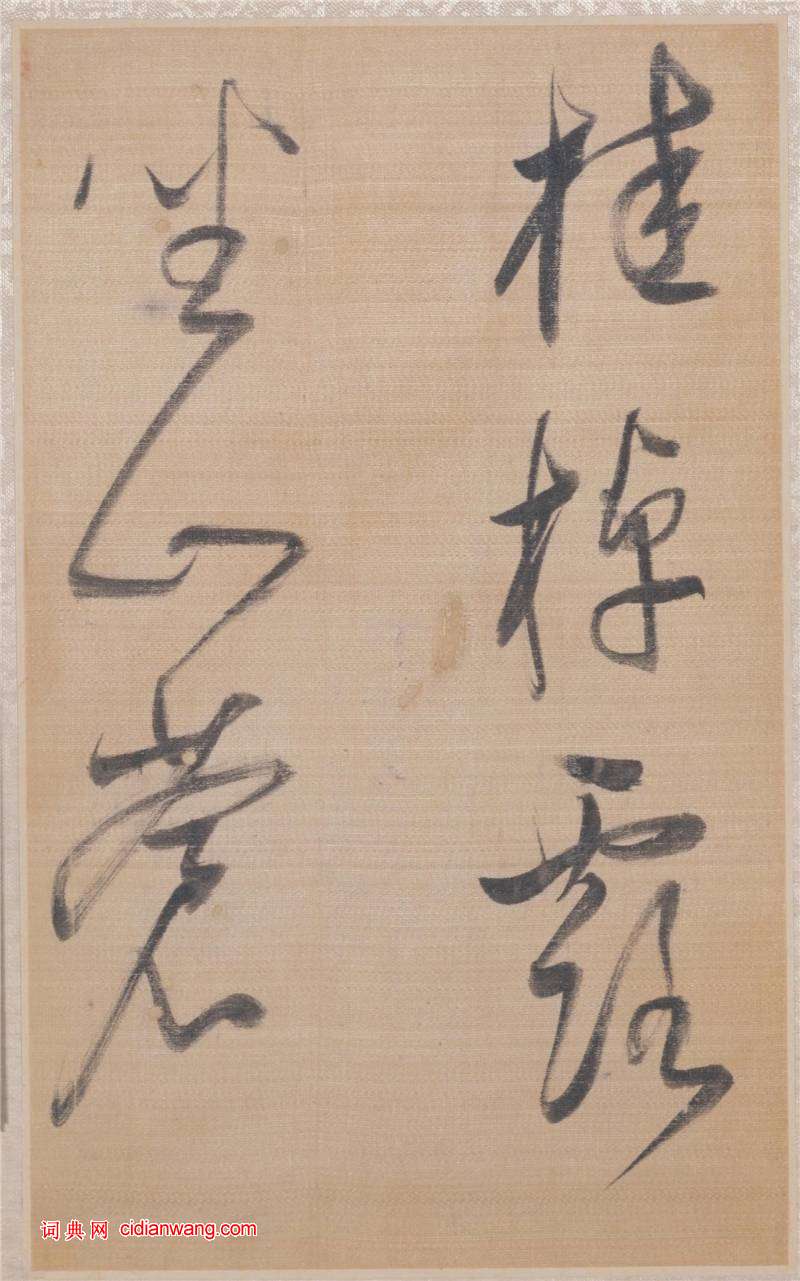 桂棹露
坐山
词典网 cidianwang.com